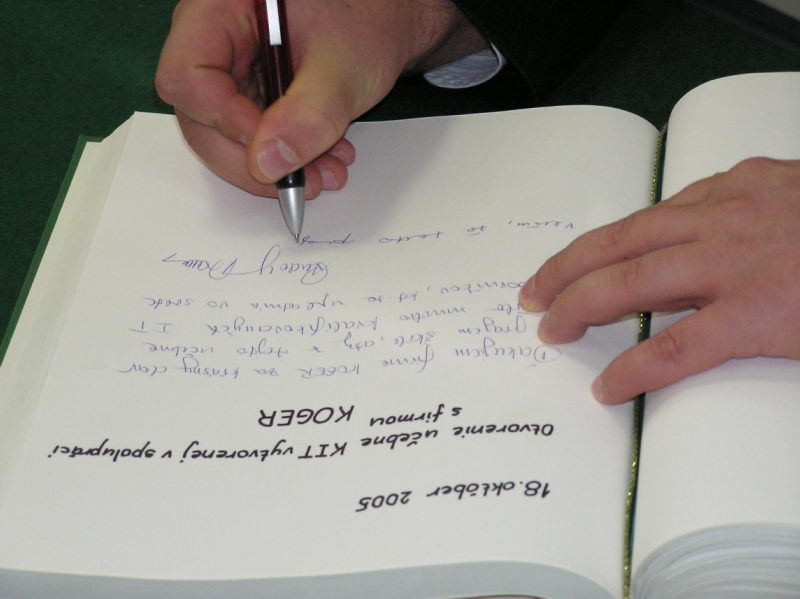 18. október 2005
Otvorenie učebne KIT vytvorenej v spolupráci
s firmou KOGER
Ďakujem firme KOGER za krásny dar
prajem škole, aby z tejto učebne
išlo mnoho kvalifikovaných IT
, kt. sa uplatnia vo svete
Rudolf Bauer
Verím, že tento pro